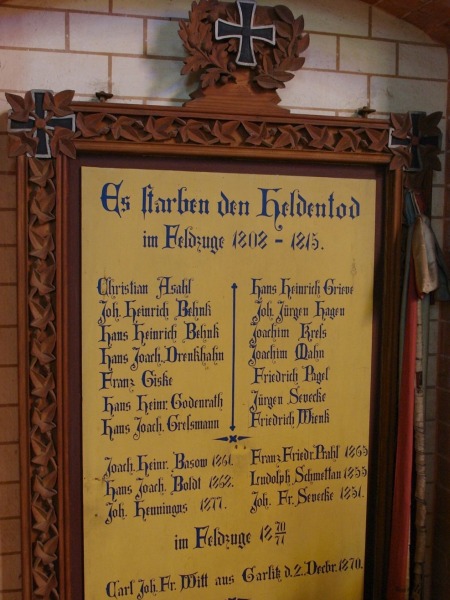 Es starben den Heldentod
im Feldzuge 1808 - 1815.
Christian Asahl
Joh. Heinrich Behnk
Hans Heinrich Behnk
Hans Joach. Drenkhahn
Franz Giske
Hans Heinr. Godenrath
Hans Joach. Grelsmann
Hans Heinrich Grieve
Joh. Jürgen Hagen
Joachim Krels
Joachim Mahn
Friedrich Pagel
Jürgen Sevecke
Friedrich Wienk
Joach. Heinr. Basow 1861.
Hans Joach. Boldt 1868.
Joh. Hennings 1877.
Franz Friedr. Prahl 1865
Ludolph Schmettau 1855
Joh. Fr. Sevecke 1851.
im Feldzuge 18 70/71
Carl Joh. Fr. Witt aus Garlitz d. 2. Decbr. 1870.